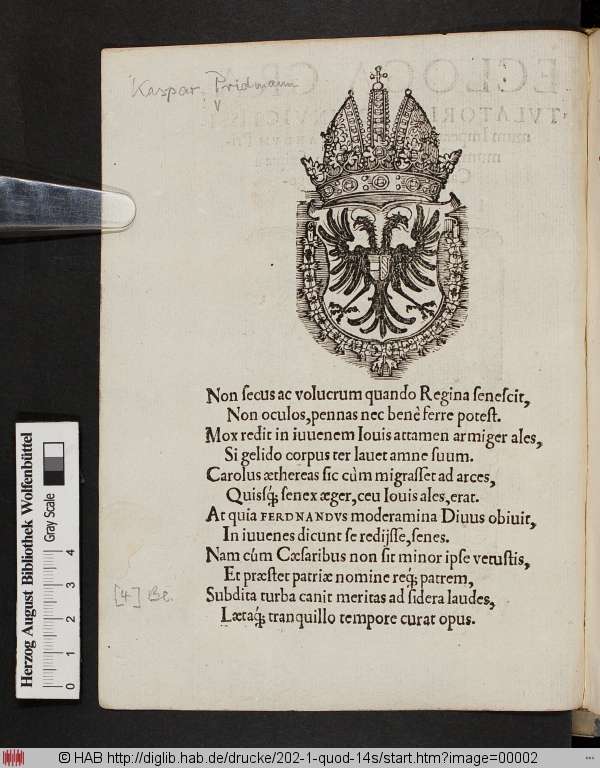 Kaspar Pridmann
V
Non secus ac volucrum quando Regina senescit,
Non oculos, pennas nec benè ferre potest.
Mox redit in iuuenem Iouis attamen armiger ales,
Si gelido corpus ter lauet amne suum.
Carolus æthereas sic cùm migrasset ad arces,
Quisq́; senex æger, ceu Iouis ales, erat.
At quia FERDNANDVS moderamina Diuus obiuit,
In iuuenes dicunt se redijsse, senes.
Nam cúm Cæsaribus non sit minor ipse vetustis,
Et præstet patriæ nomine req́; patrem,
Subdita turba canit meritas ad sidera laudes,
Lætaq́; tranquillo tempore curat opus.
[4] Be.
Herzog August Bibliothek Wolfenbüttel
Gray Scale
0 1 2 3 4
© HAB http://diglib.hab.de/drucke/202-1-quod-14s/start.htm?image=00002